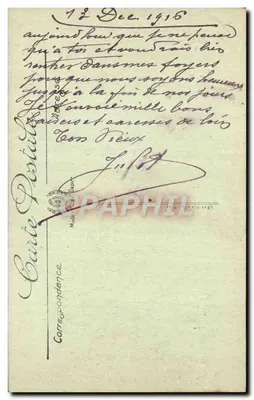 12 Dec. 1916
aujourd'hui que je ne pense
qu'a toi et voudrais bien
rentrer dans mes foyers
pour que nous soyons heureux
jusqu'à la fin de nos jours
Je t'envoie mille bons
baisers et caresses de loin
Ton Vieux
Carte Postale
Correspondance
DELCAMPE